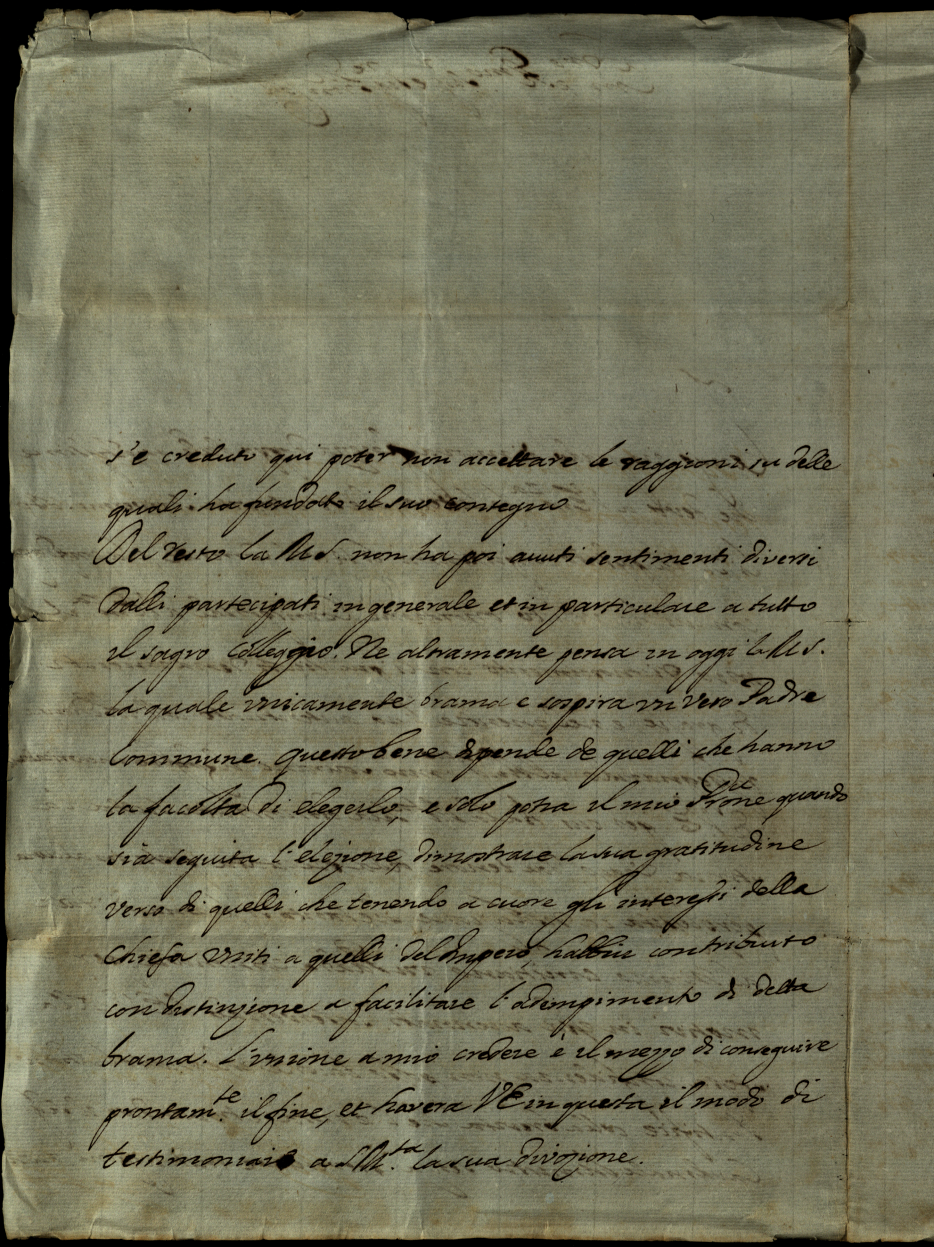 s'e creduto qui poter non accettare le raggioni su delle
quali ha fundato il suo contegno
Del resto la M.S. non ha poi avuti sentimenti diversi
dalli partecipati in generale et in particulare a tutto
il sagro Colleggio. Ne altramente pensa in oggi la M.S.
la quale unicamente brama e sospira un vero Padre
Commune. questo bene dipende de quelli che hanno
la facolta di elegerlo, e solo potra il mio Prone quando
sia seguita l'elezione, dimostrare la sua gratitudine
verso di quelli che tenendo a cuore gli interessi della
Chiesa uniti a quelli del Impero, habbin contribuito
con distinzione a facilitare l'adempimento di detta
brama. L'unione a mio credere è il mezzo di conseguire
prontamte. il fine, et havera VE in questa il modo di
testimoniare a S.M.ta la sua divozione.